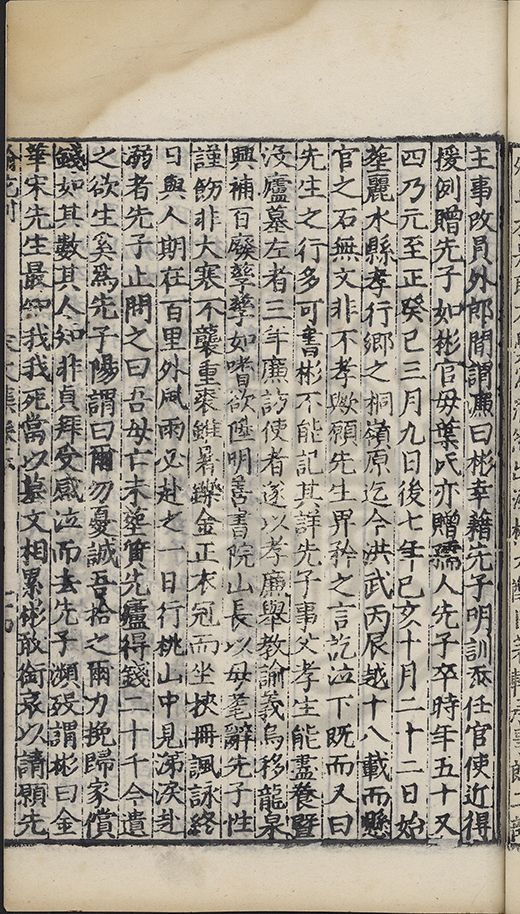 主事改員外郎間謂廉曰彬幸藉先子明訓忝任官使近得
援例贈先子如彬官毋葉氏亦贈孺人先子卒時年五十又
四乃元至正癸巳三月九日後七年己亥十月二十二日始
塟麗水縣孝行鄉之桐嶺原迄今洪武丙辰越十八載而懸
官之石無文非不孝歟願先生畀矜之言訖泣下既而又曰
先生之行多可書彬不能記其詳先子事父孝生能盡養暨
没廬墓左者三年廉訪使者遂以孝廉舉教諭義烏移龍泉
興補百廢孳孳如嗜欲陞明善書院山長以毋耄辭先子性
謹飭非大寒不襲重裘雖暑鑠金正衣冠而坐挾冊諷詠終
日與人期在百里外風雨必赴之一日行桃山中見涕淚赴
溺者先子止問之曰吾毋亡未塟貨先廬得錢二十千今遺
之欲生奚爲先子陽謂曰爾勿憂誠吾拾之爾力挽歸家償
錢如其數其人知非貞拜受感泣而去先子瀕殁謂彬曰金
華宋先生最知我我死當以墓文相累彬敢銜哀以請願先